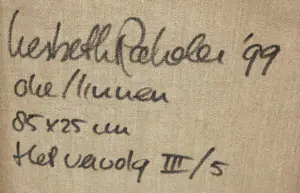 Liesbeth Rahder '99
olie/linnen
85x25 cm
Het vervolg III/5